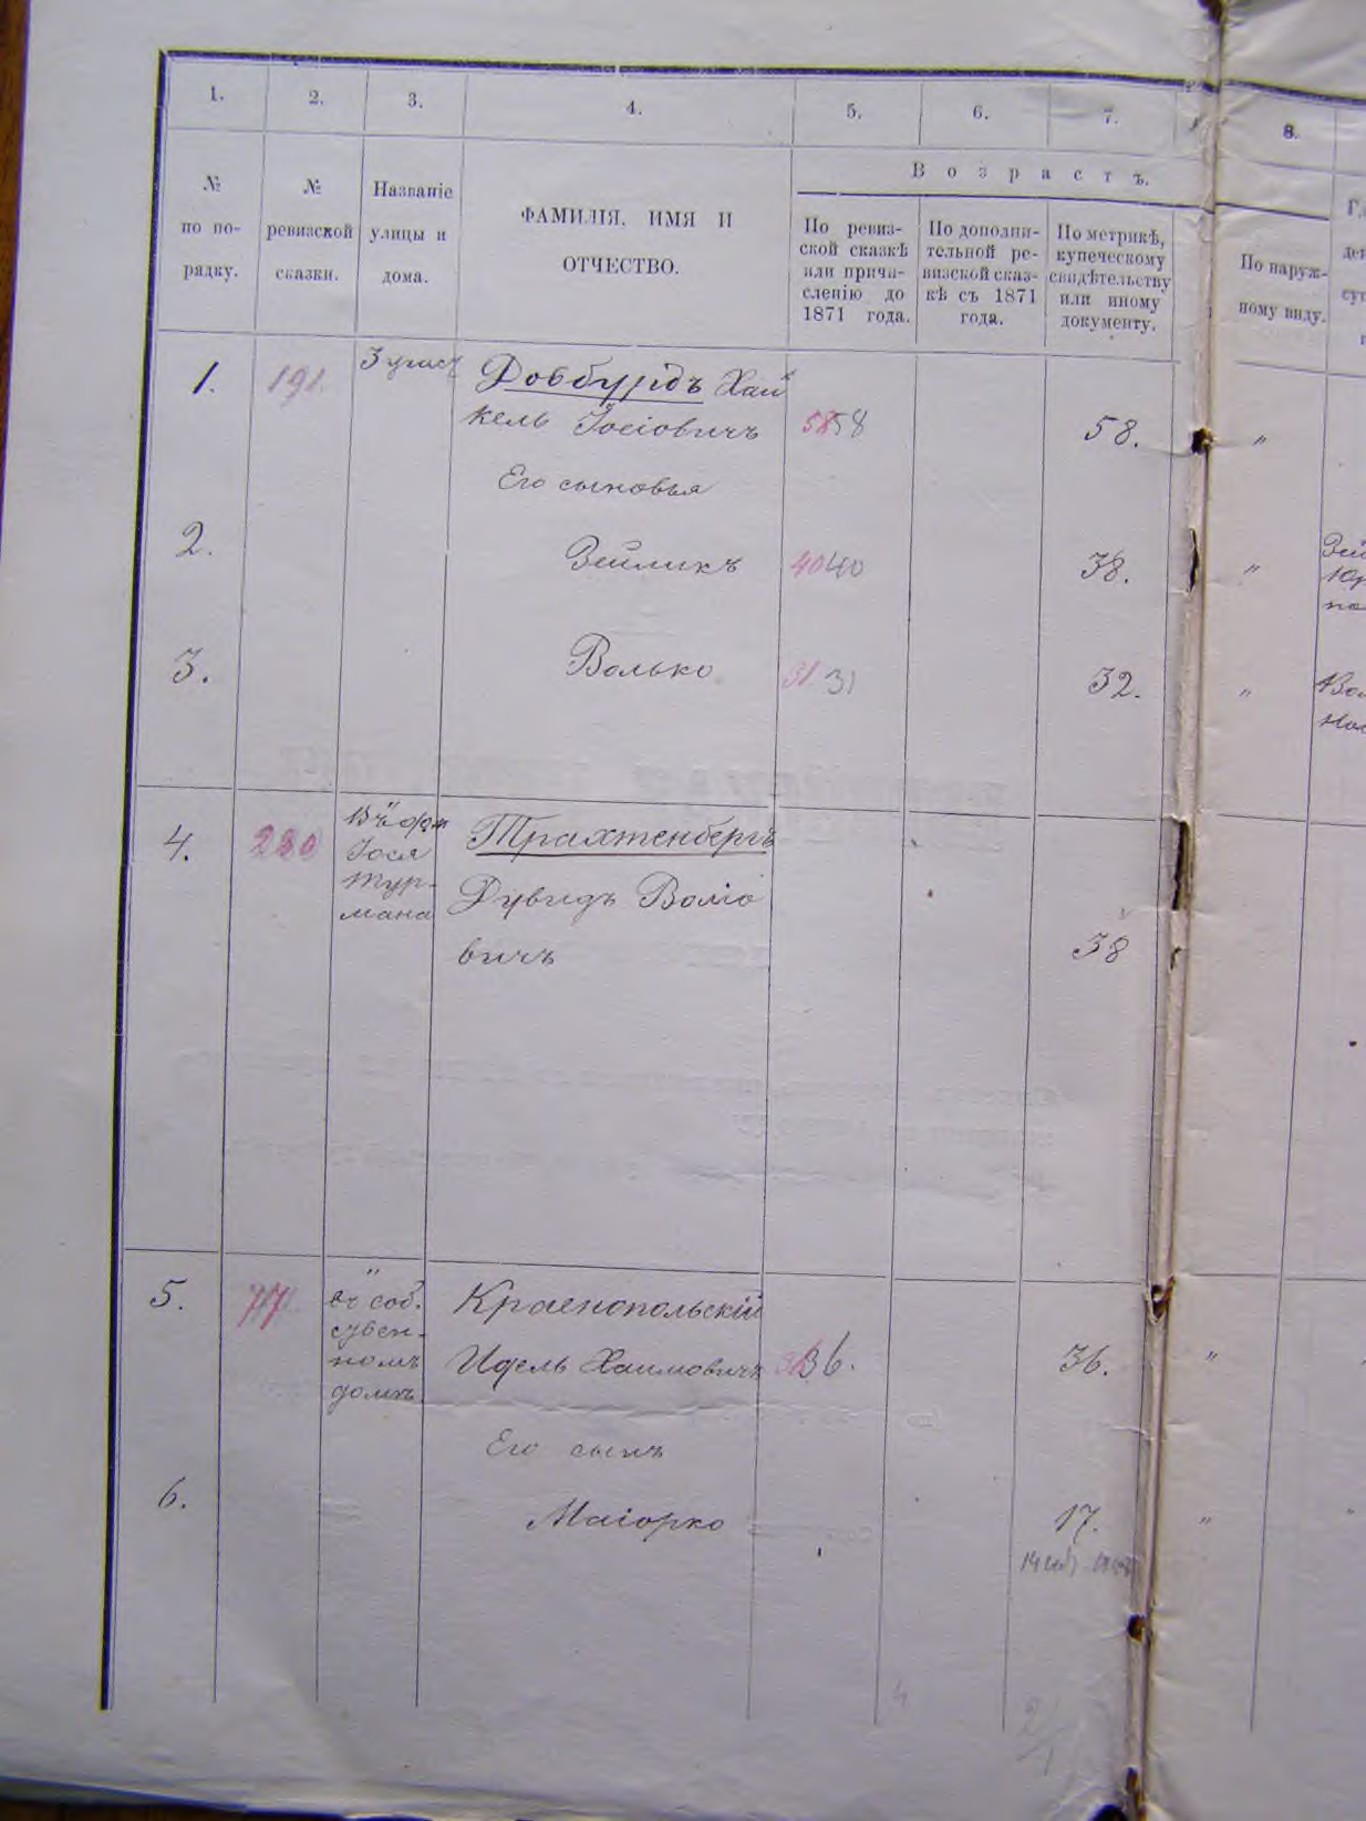 1. 2. 3. 4. 5. 6. 7. 8.
Возрастъ.
№ по по-рядку.
№ ревизской сказки.
Названіе улицы и дома.
ФАМИЛІЯ, ИМЯ И
ОТЧЕСТВО.
По ревиз-
ской сказкѣ
или причи-
сленію до
1871 года.
По дополни-
тельной ре-
визской сказ-
кѣ съ 1871
года.
По метрикѣ,
купеческому
свидѣтельству
или иному
документу.
По наруж-
ному виду.
1. 191. 3 участ Довбурдъ Хай
кель Іосіовичъ 58 58 58. "
Его сыновья
2. Зейликъ 40 40 38. "
3. Волько 31 31 32. "
4. 220 Трахтенбергъ
Іося
Тур-
мана
Дувидъ Воліо
вичъ 38
5. 77 въ соб. Краснопольскій
номъ Идель Хаимовичъ 36. 36. "
домѣ
Его сынъ
6. Маіорко 17. "